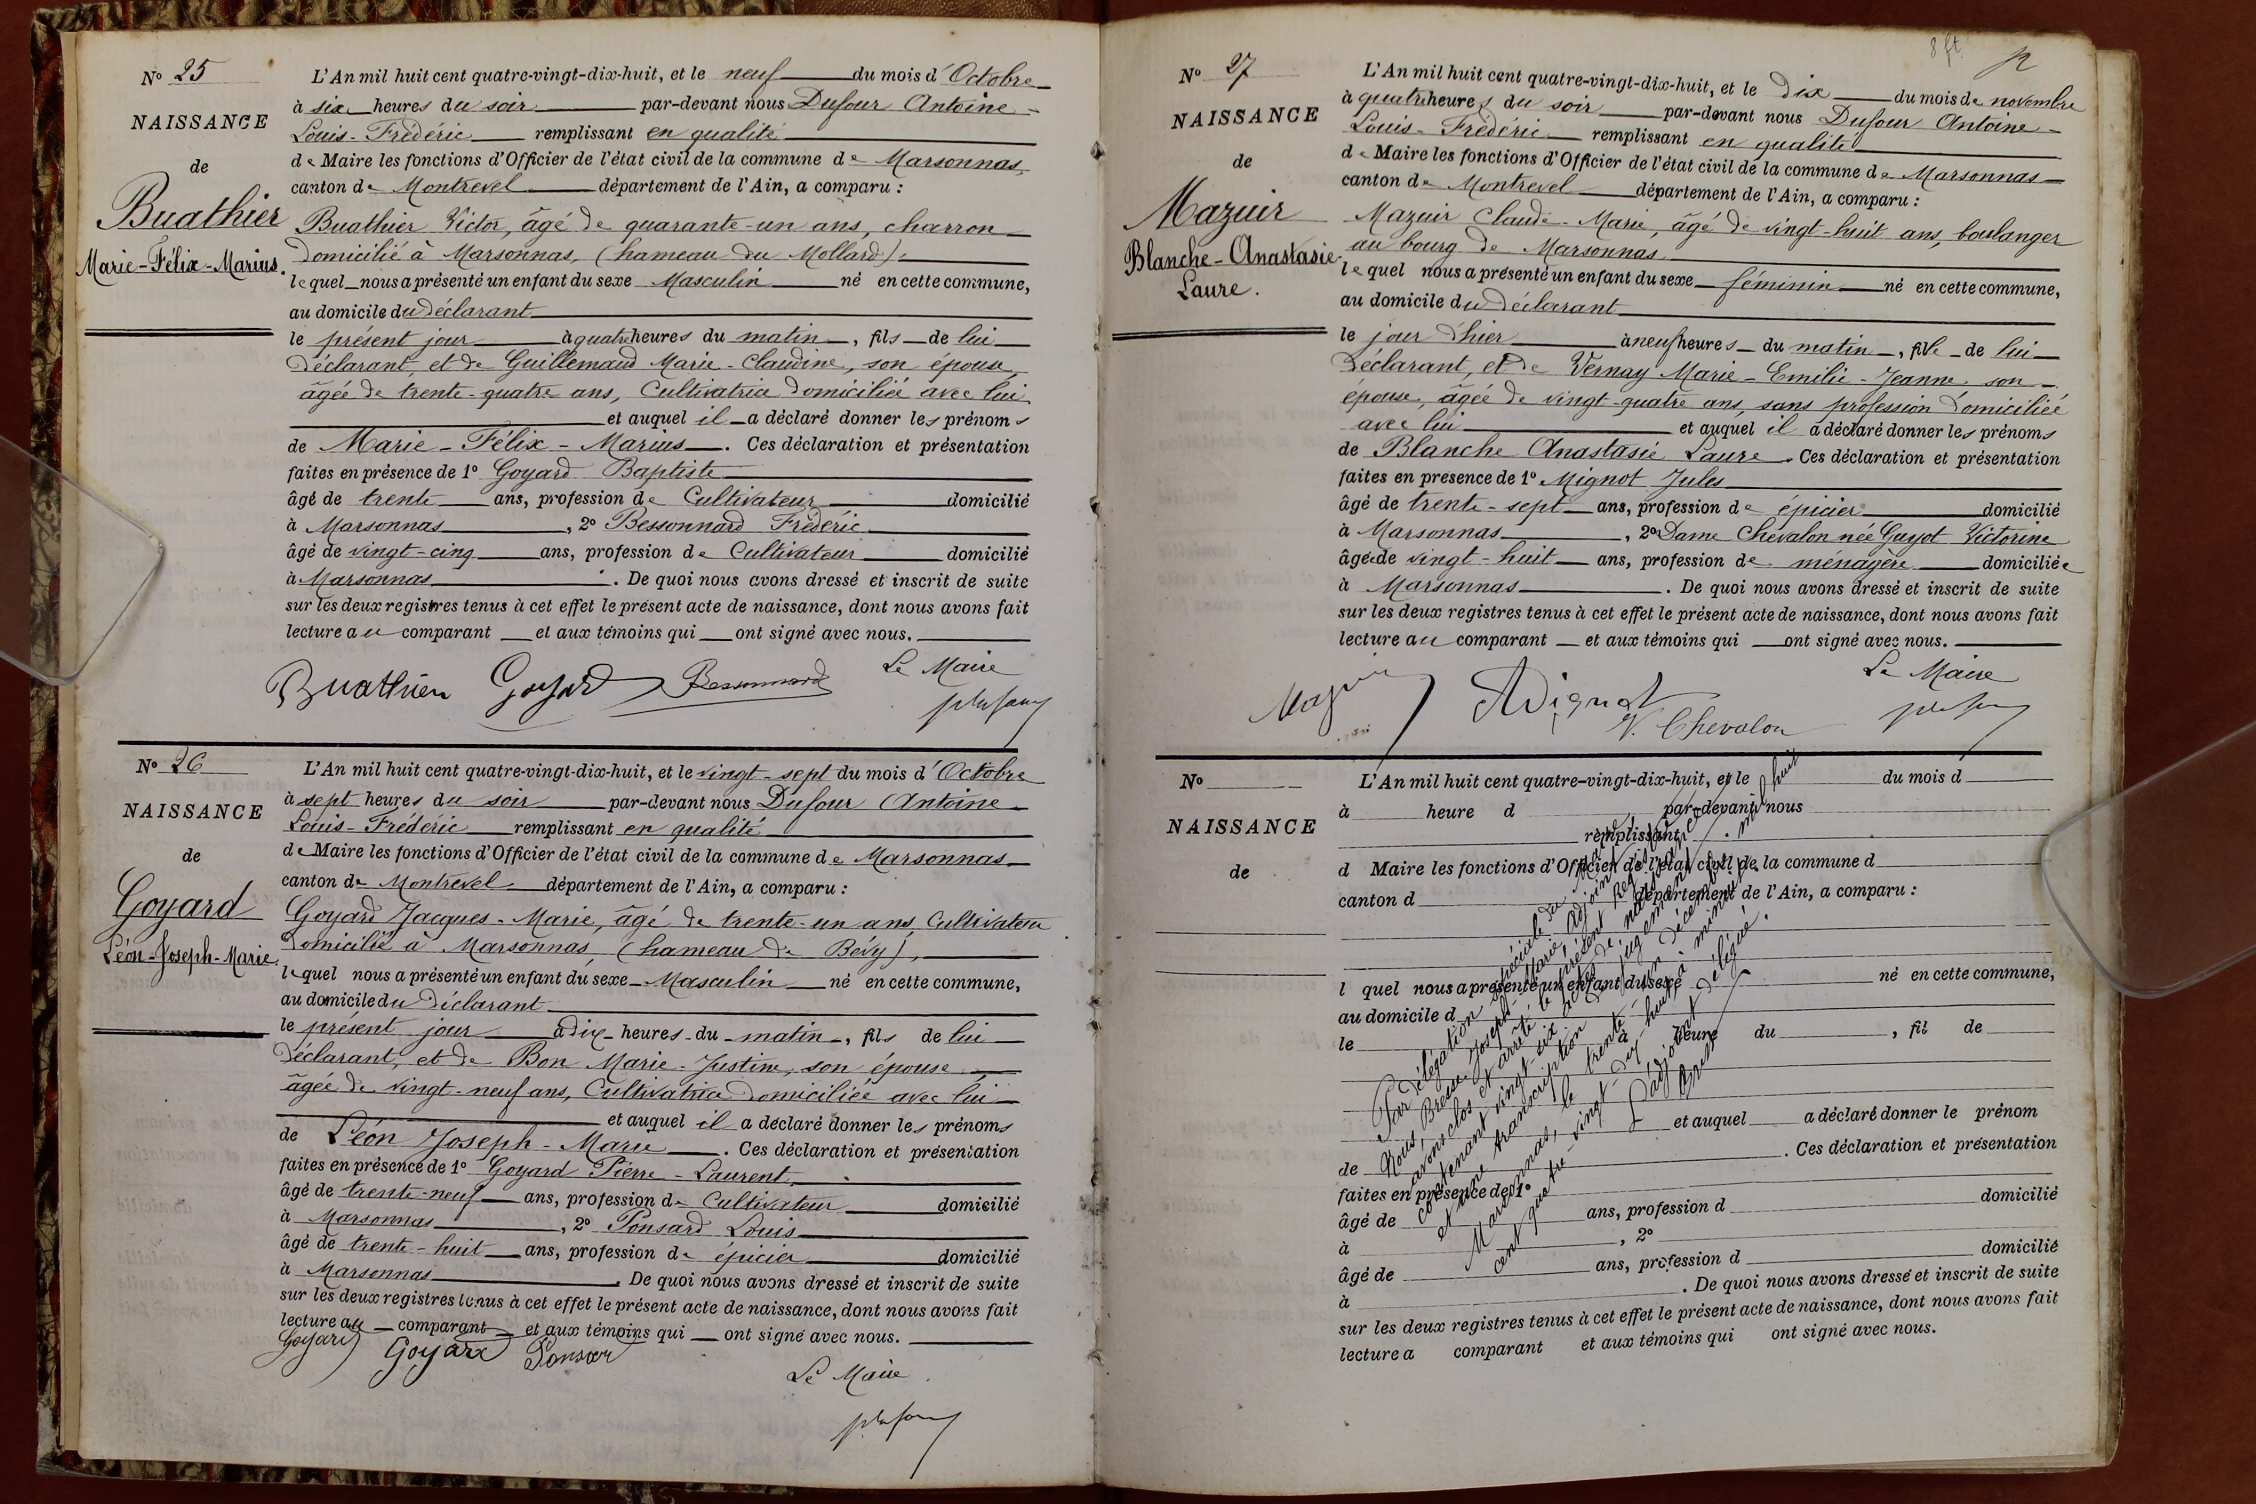 Nº 25
NAISSANCE
de
Buathier
Marie-Félix-Marius.
L'An mil huit cent quatre-vingt-dix-huit, et le neuf du mois d'Octobre
à six heures du soir par-devant nous Dufour Antoine-
Louis-Frédéric remplissant en qualité
de Maire les fonctions d'Officier de l'état civil de la commune de Marsonnas,
canton de Montrevel département de l'Ain, a comparu :
Buathier Victor, âgé de quarante-un ans, charron
domicilié à Marsonnas, (hameau du Mollard),
lequel nous a présenté un enfant du sexe Masculin né en cette commune,
au domicile du déclarant
le présent jour à quatre heures du matin, fils de lui
déclarant, et de Guillemaud Marie-Claudine, son épouse,
âgée de trente-quatre ans, Cultivatrice domiciliée avec lui
et auquel il a déclaré donner les prénoms
de Marie-Félix-Marius. Ces déclaration et présentation
faites en présence de 1º Goyard Baptiste
âgé de trente ans, profession de Cultivateur domicilié
à Marsonnas, 2º Bessonnard Frédéric
âgé de vingt-cinq ans, profession de Cultivateur domicilié
à Marsonnas. De quoi nous avons dressé et inscrit de suite
sur les deux registres tenus à cet effet le présent acte de naissance, dont nous avons fait
lecture au comparant et aux témoins qui ont signé avec nous.
Buathier Goyard Bessonnard Le Maire
Nº 26
NAISSANCE
de
Goyard
Léon-Joseph-Marie.
L'An mil huit cent quatre-vingt-dix-huit, et le vingt-sept du mois d'Octobre
à sept heures du soir par-devant nous Dufour Antoine-
Louis-Frédéric remplissant en qualité
de Maire les fonctions d'Officier de l'état civil de la commune de Marsonnas
canton de Montrevel département de l'Ain, a comparu :
Goyard Jacques-Marie, âgé de trente-un ans, Cultivateur
domicilié à Marsonnas, (hameau de Bévy),
lequel nous a présenté un enfant du sexe Masculin né en cette commune,
au domicile du déclarant
le présent jour à dix heures du matin, fils de lui
déclarant, et de Bon Marie-Justine, son épouse
âgée de vingt-neuf ans, Cultivatrice domiciliée avec lui
et auquel il a déclaré donner les prénoms
de Léon Joseph-Marie. Ces déclaration et présentation
faites en présence de 1º Goyard Pierre-Laurent,
âgé de trente-neuf ans, profession de Cultivateur domicilié
à Marsonnas, 2º Ponsard Louis
âgé de trente-huit ans, profession de épicier domicilié
à Marsonnas. De quoi nous avons dressé et inscrit de suite
sur les deux registres tenus à cet effet le présent acte de naissance, dont nous avons fait
lecture au comparant et aux témoins qui ont signé avec nous.
Goyard Goyard Ponsard
Le Maire
8 ft.
Nº 27
NAISSANCE
de
Mazuir
Blanche-Anastasie-
Laure.
L'An mil huit cent quatre-vingt-dix-huit, et le dix du mois de novembre
à quatre heures du soir par-devant nous Dufour Antoine-
Louis-Frédéric remplissant en qualité
de Maire les fonctions d'Officier de l'état civil de la commune de Marsonnas
canton de Montrevel département de l'Ain, a comparu :
Mazuir Claude-Marie, âgé de vingt-huit ans, boulanger
au bourg de Marsonnas
lequel nous a présenté un enfant du sexe féminin né en cette commune,
au domicile du déclarant
le jour d'hier à neuf heures du matin, fille de lui
déclarant, et de Vernay Marie-Emilie-Jeanne son
épouse, âgée de vingt-quatre ans, sans profession domiciliée
avec lui et auquel il a déclaré donner les prénoms
de Blanche Anastasie Laure. Ces déclaration et présentation
faites en présence de 1º Mignot Jules
âgé de trente-sept ans, profession de épicier domicilié
à Marsonnas, 2º Dame Chevalon née Guyot Victorine
âgée de vingt-huit ans, profession de ménagère domiciliée
à Marsonnas. De quoi nous avons dressé et inscrit de suite
sur les deux registres tenus à cet effet le présent acte de naissance, dont nous avons fait
lecture au comparant et aux témoins qui ont signé avec nous.
Mazuir Mignot V. Chevalon Le Maire
Nº
NAISSANCE
de
L'An mil huit cent quatre-vingt-dix-huit, et le du mois d
à heure d par-devant nous
remplissant
d Maire les fonctions d'Officier de l'état civil de la commune d
canton d département de l'Ain, a comparu :
l quel nous a présenté un enfant du sexe né en cette commune,
au domicile d
le à heure du , fil de
et auquel a déclaré donner le prénom
de . Ces déclaration et présentation
faites en présence de 1º
âgé de ans, profession d domicilié
à , 2º
âgé de ans, profession d domicilié
à . De quoi nous avons dressé et inscrit de suite
sur les deux registres tenus à cet effet le présent acte de naissance, dont nous avons fait
lecture a comparant et aux témoins qui ont signé avec nous.
Par délégation spéciale du Maire
Nous, Bresse Joseph-Marie, Adjoint,
avons clos et arrêté le présent Registre
contenant vingt-six actes de naissance
et une transcription de jugement.
Marsonnas, le trente-un décembre mil huit
cent quatre-vingt-dix huit à minuit.
L'adjoint délégué.